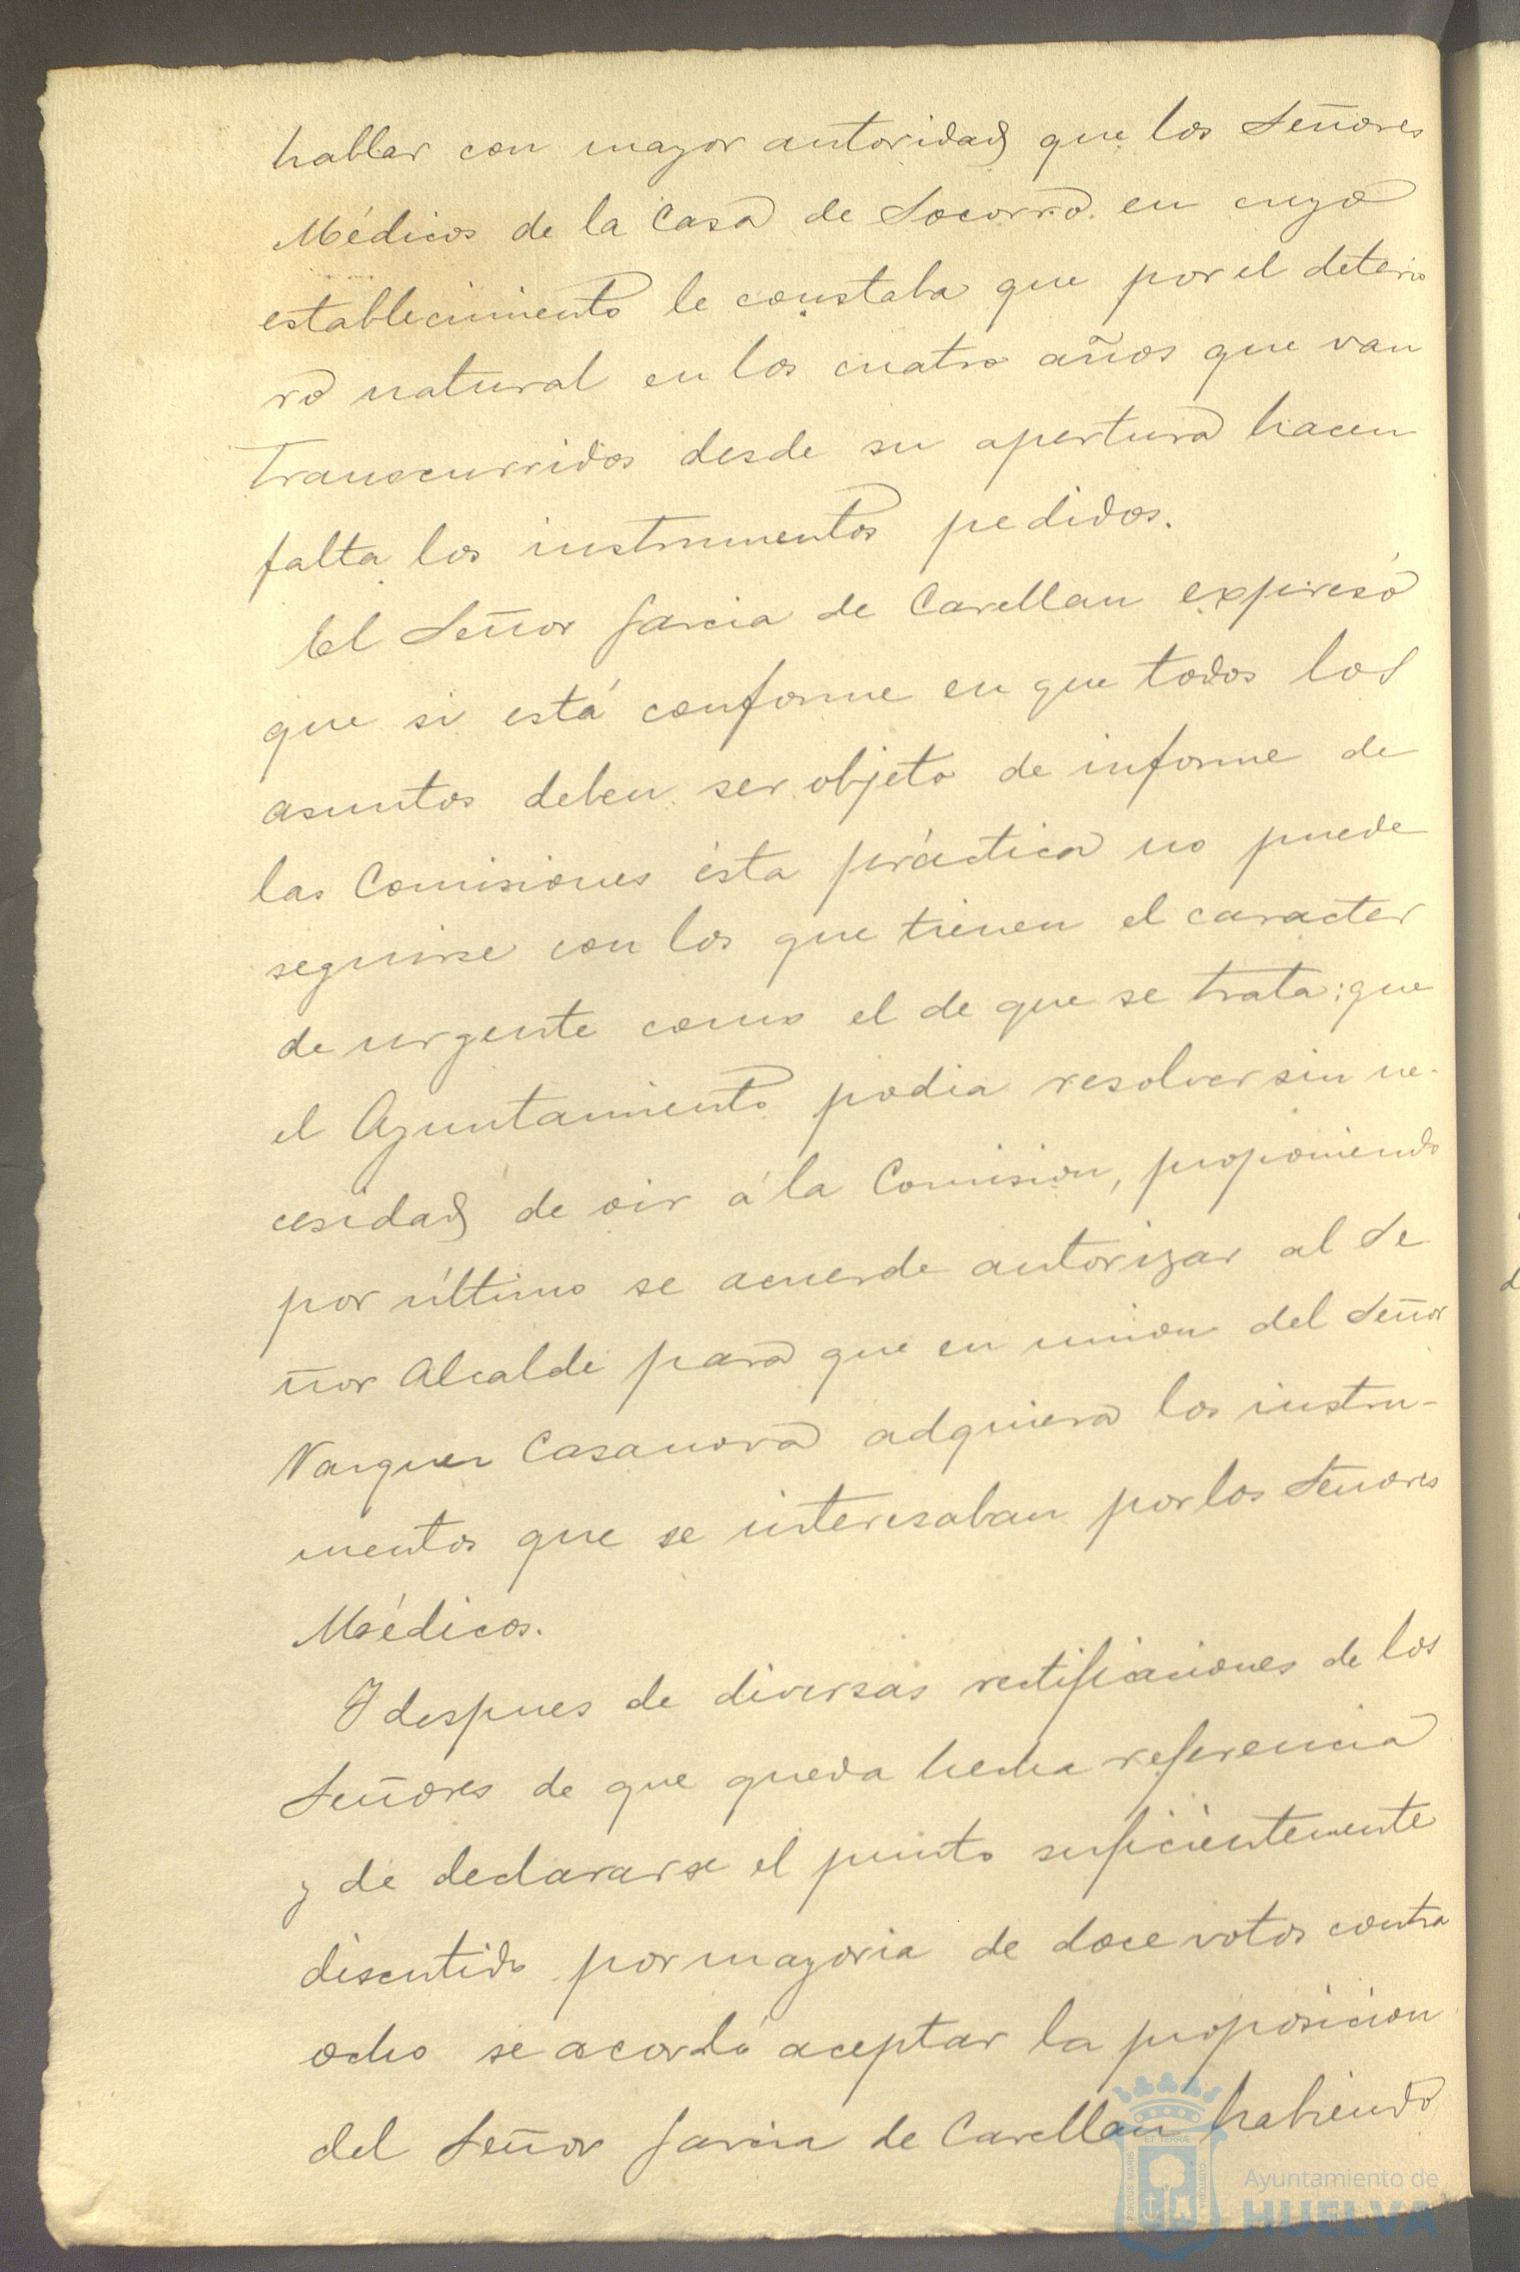 hablar con mayor autoridad que los Señores
Médicos de la Casa de Socorro en cuyo
establecimiento le constaba que por el deterio
ro natural en los cuatro años que van
transcurridos desde su apertura hacen
falta los instrumentos pedidos.
El Señor Garcia de Carellan expresó
que si está conforme en que todos los
asuntos deben ser objeto de informe de
las Comisiones ésta práctica no puede
seguirse con los que tienen el caracter
de urgente como el de que se trata; que
el Ayuntamiento podia resolver sin ne-
cesidad de oir á la Comision, proponiendo
por último se acuerde autorizar al Se
ñor Alcalde para que en union del Señor
Vazquez Casanova adquiera los instru-
mentos que se interesaban por los Señores
Médicos.
Y despues de diversas rectificaciones de los
Señores de que queda hecha referencia
y de declararse el punto suficientemente
discutido por mayoria de doce votos contra
ocho se acordó aceptar la proposicion
del Señor Garcia de Carellan habiendo
Ayuntamiento de
HUELVA